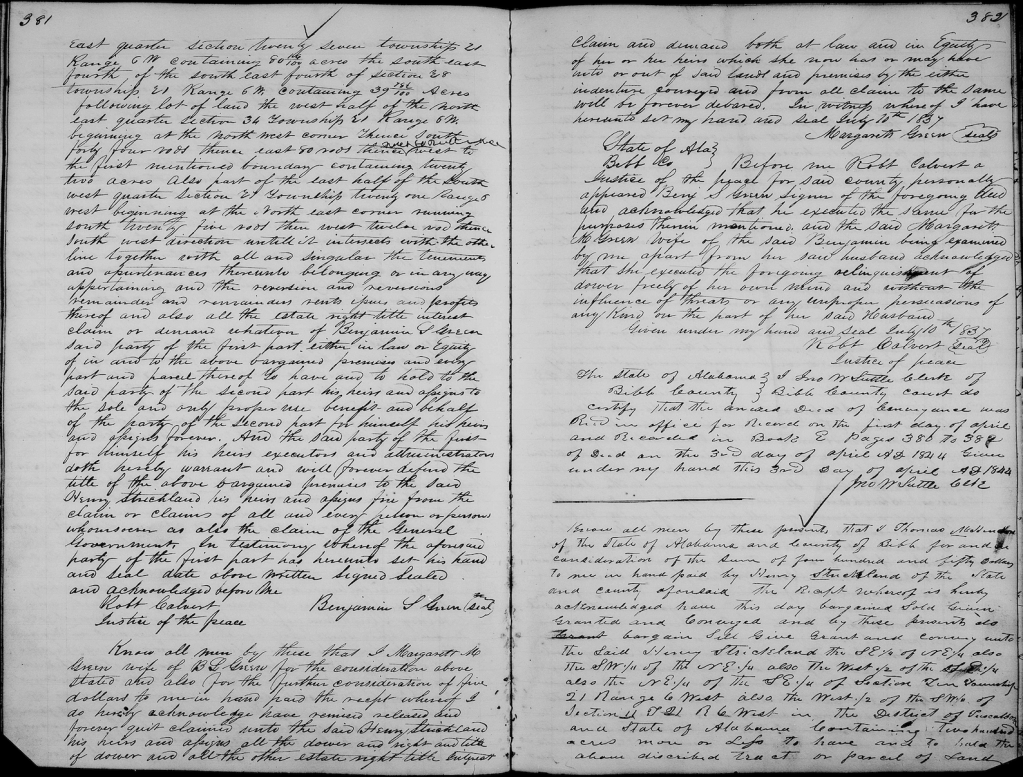 381
East quarter section twenty seven township 21
Range 6 W containing 80 acres the south east
fourth, of the south east fourth of section 28
township 21 Range 6 W. containing 39 Acres
following lot of land the west half of the north
east quarter section 34 Township 21 Range 6 W.
beginning at the north west corner thence South
forty four rods thence east 80 rods thence west to
the first mentioned boundary containing twenty
two acres also part of the east half of the South
west quarter section 27 Township twenty one Range 6
west beginning at the North east corner running
South twenty five rods then west twelve rod thence
South west direction untill it intersects with the other
line together with all and singular the tenements
and apurtenances thereunto belonging or in any way
appertaining and the reversion and reversions
remainder and remainders rents ipues and profits
thereof and also all the estate right title interest
claim or demand whatson of Benjamin S Green
said party of the first part either in law or Equity
of in and to the above bargained premises and every
part and parcel thereof to have and to hold to the
said party of the second part his heirs and apigns to
the sole and only proper use benefit and behalf
of the party of the second part for himself his heirs
and apigns forever. And the said party of the first
for himself his heirs executors and administrators
doth hereby warrant and will forever defend the
title of the above bargained premises to the said
Henry Strickland his heirs and apigns free from the
claim or claims of all and every person or persons
whomsoever as also the claim of the General
Government. In testimony whereof the aforesaid
party of the first part has hereunto set his hand
and seal date above written signed sealed
and acknowledged before me
Robt Calvert Benjamin S Green (seal)
Justice of the peace
Know all men by these that I Margarett M
Green wife of B S Green for the consideration above
stated and also for the further consideration of five
dollars to me in hand paid the recept whereof I
do hereby acknowledge have remised released and
forever quit claimed unto the said Henry Strickland
his heirs and apigns all the dower and right and title
of dower and all the other estate right title interest
382
claim and demand both at law and in Equity
of her or her heirs which she now has or may have
into or out of said lands and premises by the either
indenture conveyed and from all claim to the same
will be forever debared. In witness whereof I have
hereunto set my hand and seal July 10th 1837
Margarett Green (seal)
State of Ala}
Bibb Co } Before me Robt Calvert a
Justice of the peace for said county personally
appeared Benj S Green signer of the foregoing deed
and acknowledged that he executed the same for the
purposes therein mentioned, and the said Margarett
M Green wife of the said Benjamin being examined
by me apart from her said husband acknowledged
that she executed the foregoing relinquishment of
dower freely of her own mind and without the
influence of threats or any improper persuasions of
any kind on the part of her said Husband
Given under my hand and seal July 10th 1837
Robt Calvert (seal)
Justice of peace
The State of Alabama} I Jno W Suttle Clerk of
Bibb County } Bibb County court do
certify that the annexed Deed of Conveyance was
Recd in office for Record on the first day of april
and Recorded in Book E Pages 380 to 382
of Deed on the 3rd day of april AD 1844 Given
under my hand this 3rd day of april AD 1844
Jno W Suttle Clk
Know all men by these presents that I Thomas
of the State of Alabama and County of Bibb for and in
consideration of the sum of four hundred and fifty dollars
to me in hand paid by Henry Strickland of the State
and county aforesaid the Recept whereof is hereby
acknowledged have this day bargained Sold Given
Granted and Conveyed and by these presents do
Grant bargain Sell Give Grant and convey unto
the said Henry Strickland the SE/4 of NE/4 also
the SW/4 of the NE/4 also the West/2 of the SE/4
also the NE/4 of the SE/4 of Section Ten Township
21 Range 6 West also the West/2 of the SW/4 of
Section 11 T 21 R 6 West in the District of Tuscaloosa
and State of Alabama Containing Two hundred
acres more or less to have and to hold the
above discribed tract or parcel of Land